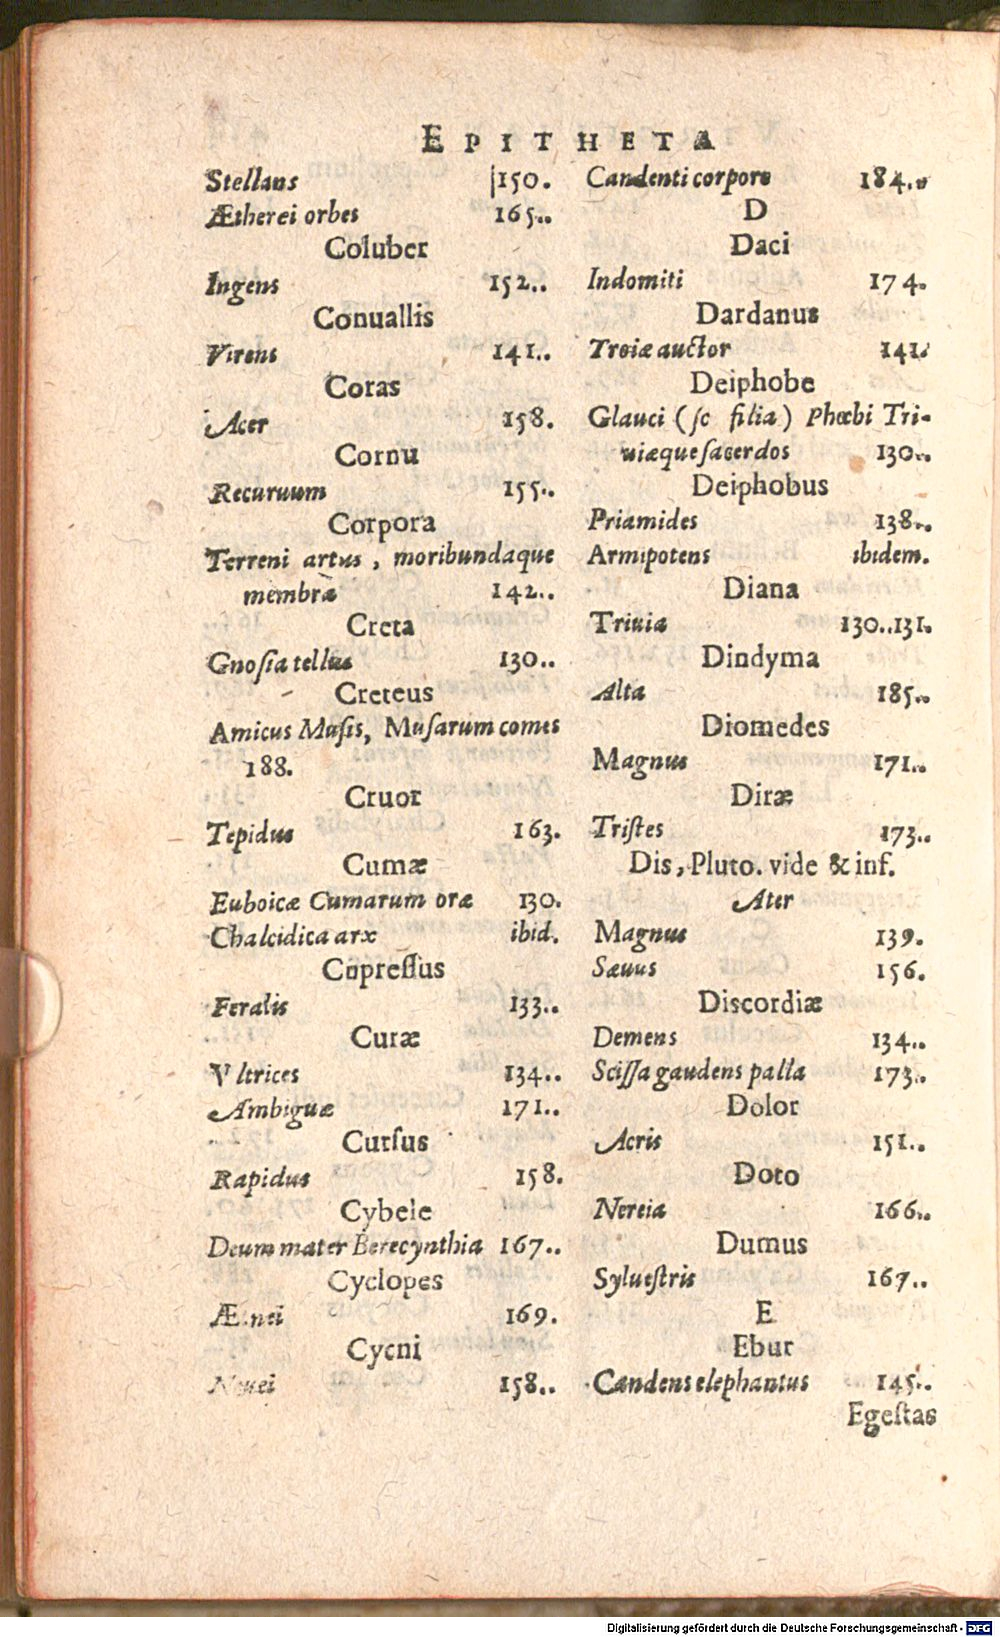 EPITHETA
Stellans 150.
Ætherei orbes 165..
Coluber
Ingens 152..
Conuallis
Virens 141..
Coras
Acer 158.
Cornu
Recuruum 155..
Corpora
Terreni artus, moribundaque
membra 142..
Creta
Gnosia tellus 130..
Creteus
Amicus Musis, Musarum comes
188.
Cruor
Tepidus 163.
Cumæ
Euboicæ Cumarum oræ 130.
Chalcidica arx ibid.
Cupreſſus
Feralis 133..
Curæ
Vltrices 134..
Ambiguæ 171..
Curſus
Rapidus 158.
Cybele
Deum mater Berecynthia 167..
Cyclopes
Ætnei 169.
Cycni
Niuei 158..
Candenti corpore 184..
D
Daci
Indomiti 174.
Dardanus
Troiæ auctor 141.
Deiphobe
Glauci (ſc filia) Phœbi Tri-
uiæque ſacerdos 130..
Deiphobus
Priamides 138..
Armipotens ibidem.
Diana
Triuia 130..131.
Dindyma
Alta 185..
Diomedes
Magnus 171..
Diræ
Triſtes 173..
Dis, Pluto. vide & inf.
Ater
Magnus 139.
Sæuus 156.
Discordiæ
Demens 134..
Sciſſa gaudens palla 173..
Dolor
Acris 151..
Doto
Nereia 166..
Dumus
Sylueſtris 167..
E
Ebur
Candens elephantus 145..
Egeſtas
Digitalisierung gefördert durch die Deutsche Forschungsgemeinschaft - DFG